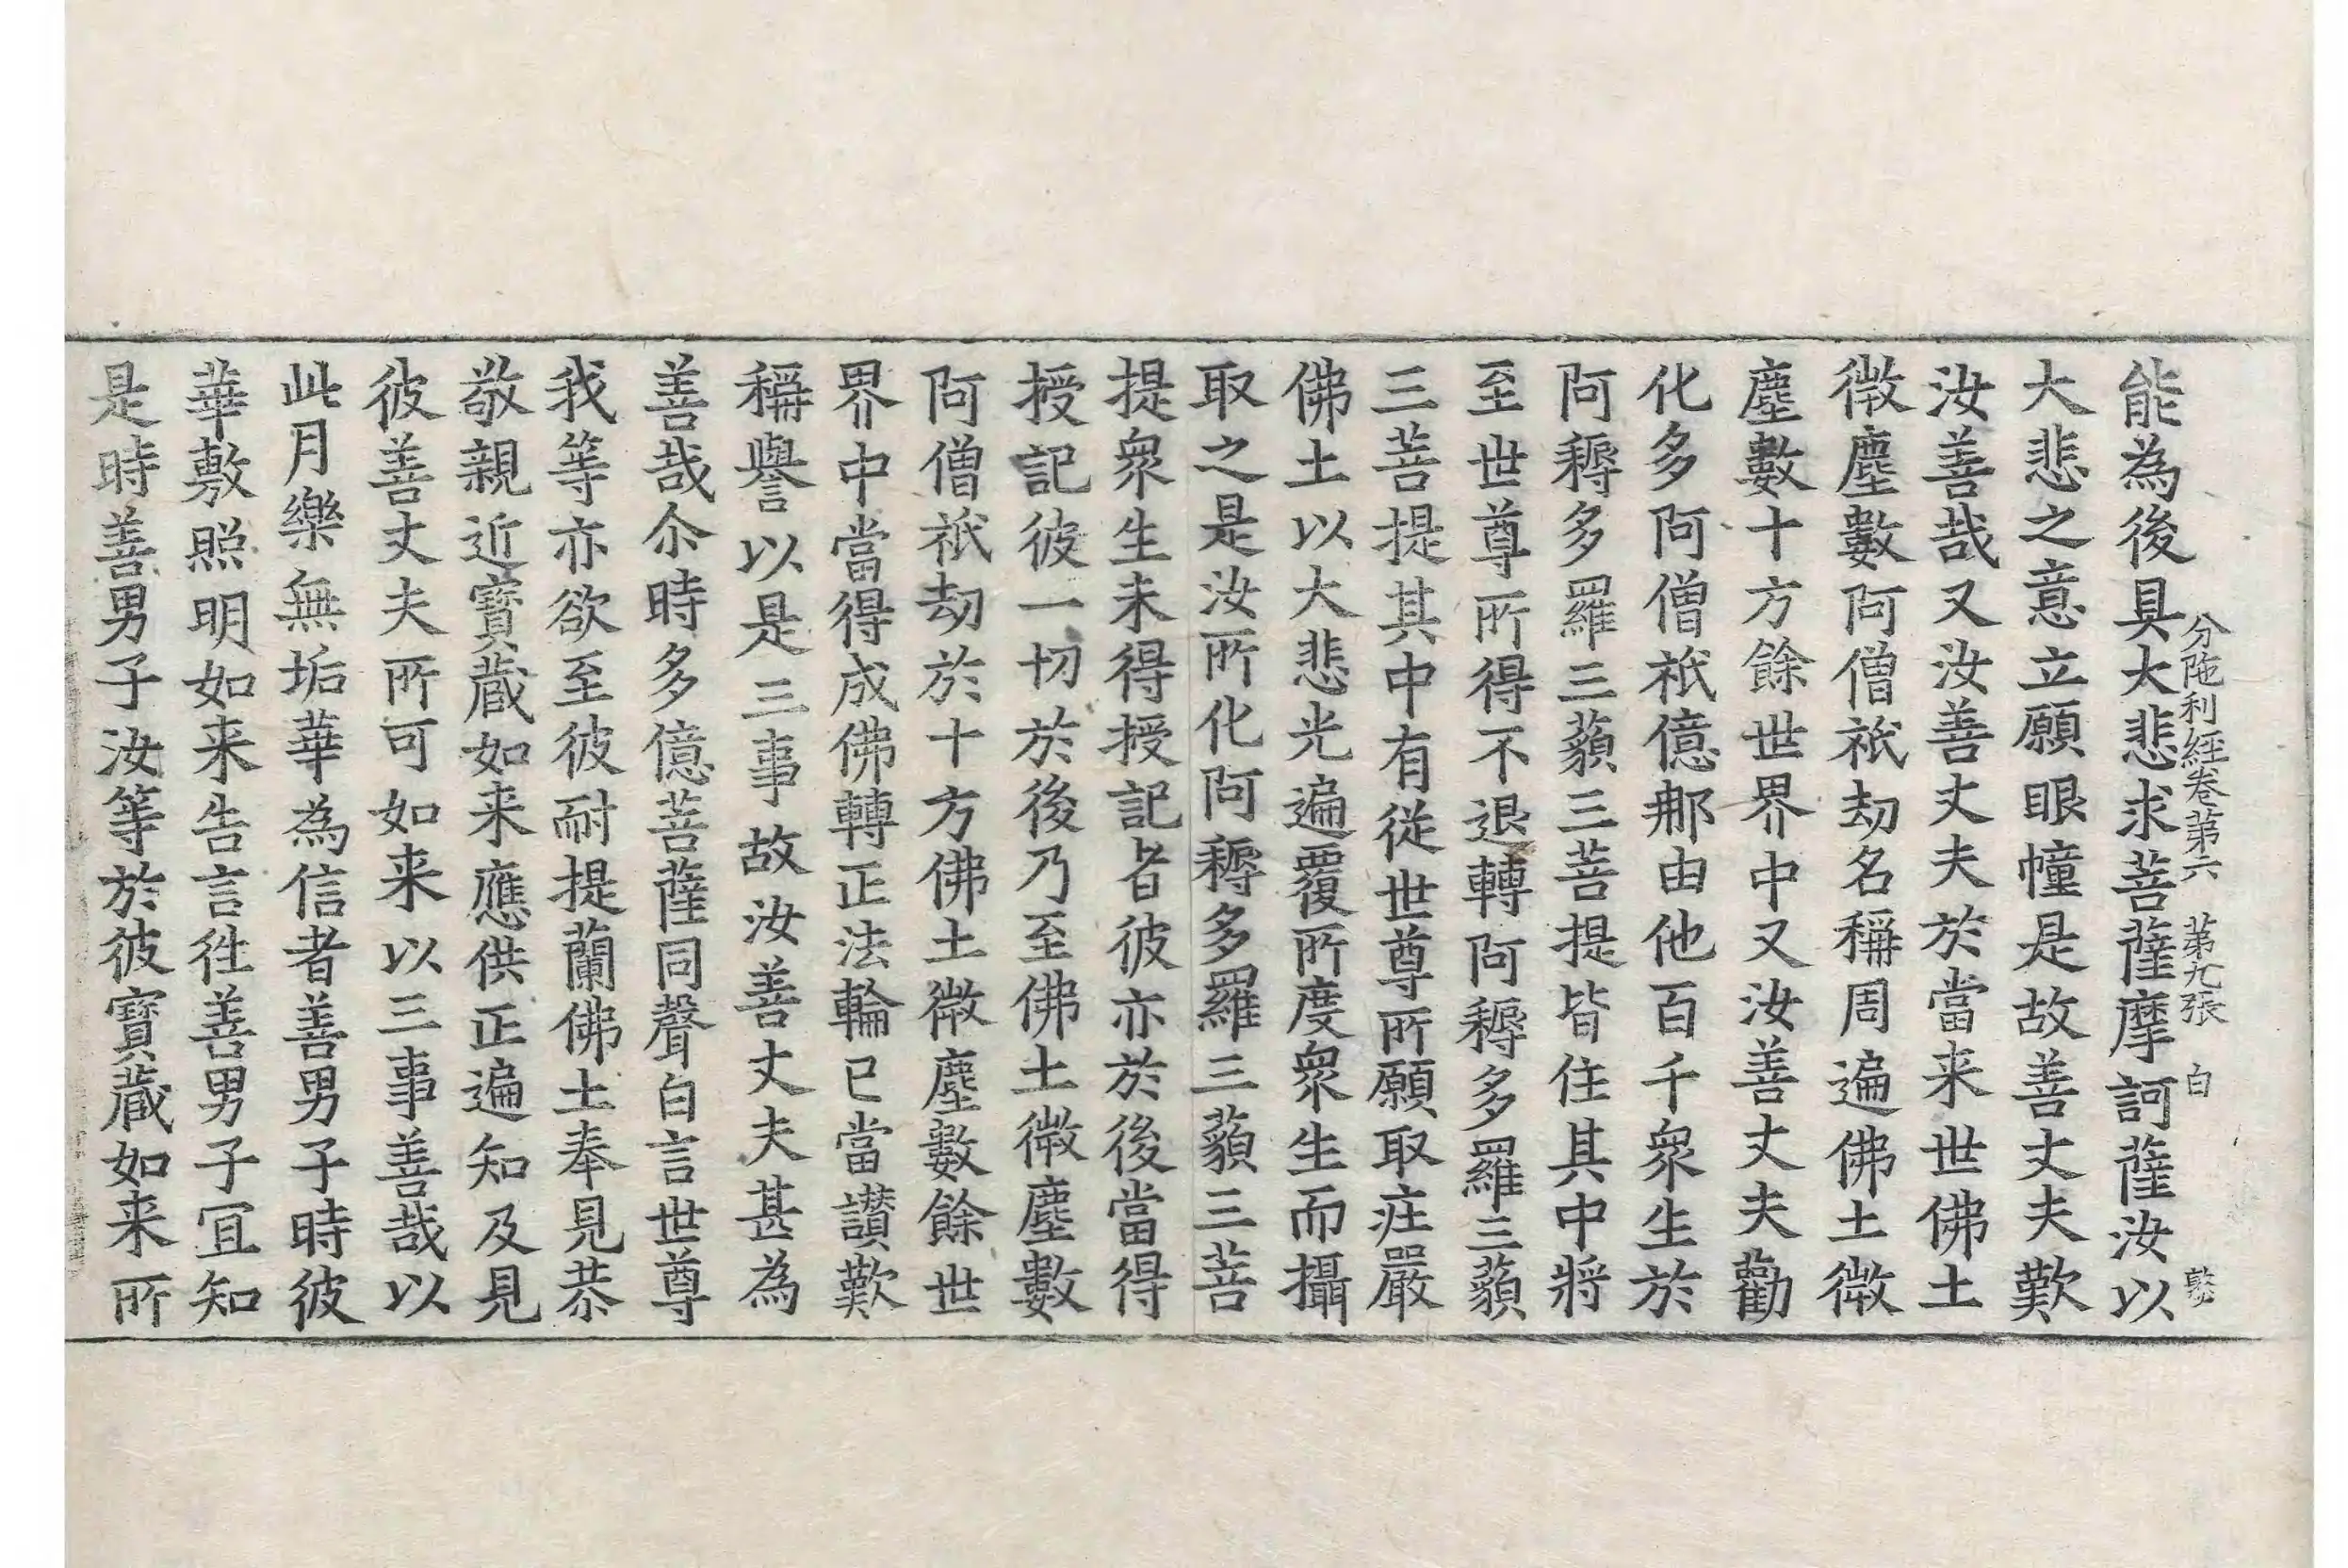 分陁利經卷第六　第九張　白
能為後具大悲求菩薩摩訶薩汝以
大悲之意立願眼幢是故善丈夫歎
汝善哉又汝善丈夫於當来世佛土
微塵數阿僧祇劫名稱周遍佛土微
塵數十方餘世界中又汝善丈夫勸
化多阿僧祇億那由他百千衆生於
阿耨多羅三藐三菩提皆住其中將
至世尊所得不退轉阿耨多羅三藐
三菩提其中有從世尊所願取莊嚴
佛土以大悲光遍覆所度衆生而攝
取之是汝所化阿耨多羅三藐三菩
提衆生未得授記者彼亦於後當得
授記彼一切於後乃至佛土微塵數
阿僧祇劫於十方佛土微塵數餘世
界中當得成佛轉正法輪已當讃歎
稱譽以是三事故汝善丈夫甚為
善哉尒時多億菩薩同聲白言世尊
我等亦欲至彼耐提蘭佛土奉見恭
敬親近寶蔵如来應供正遍知及見
彼善丈夫所可如来以三事善哉以
此月樂無垢華為信者善男子時彼
華敷照明如来告言徃善男子冝知
是時善男子汝等於彼寶蔵如来所